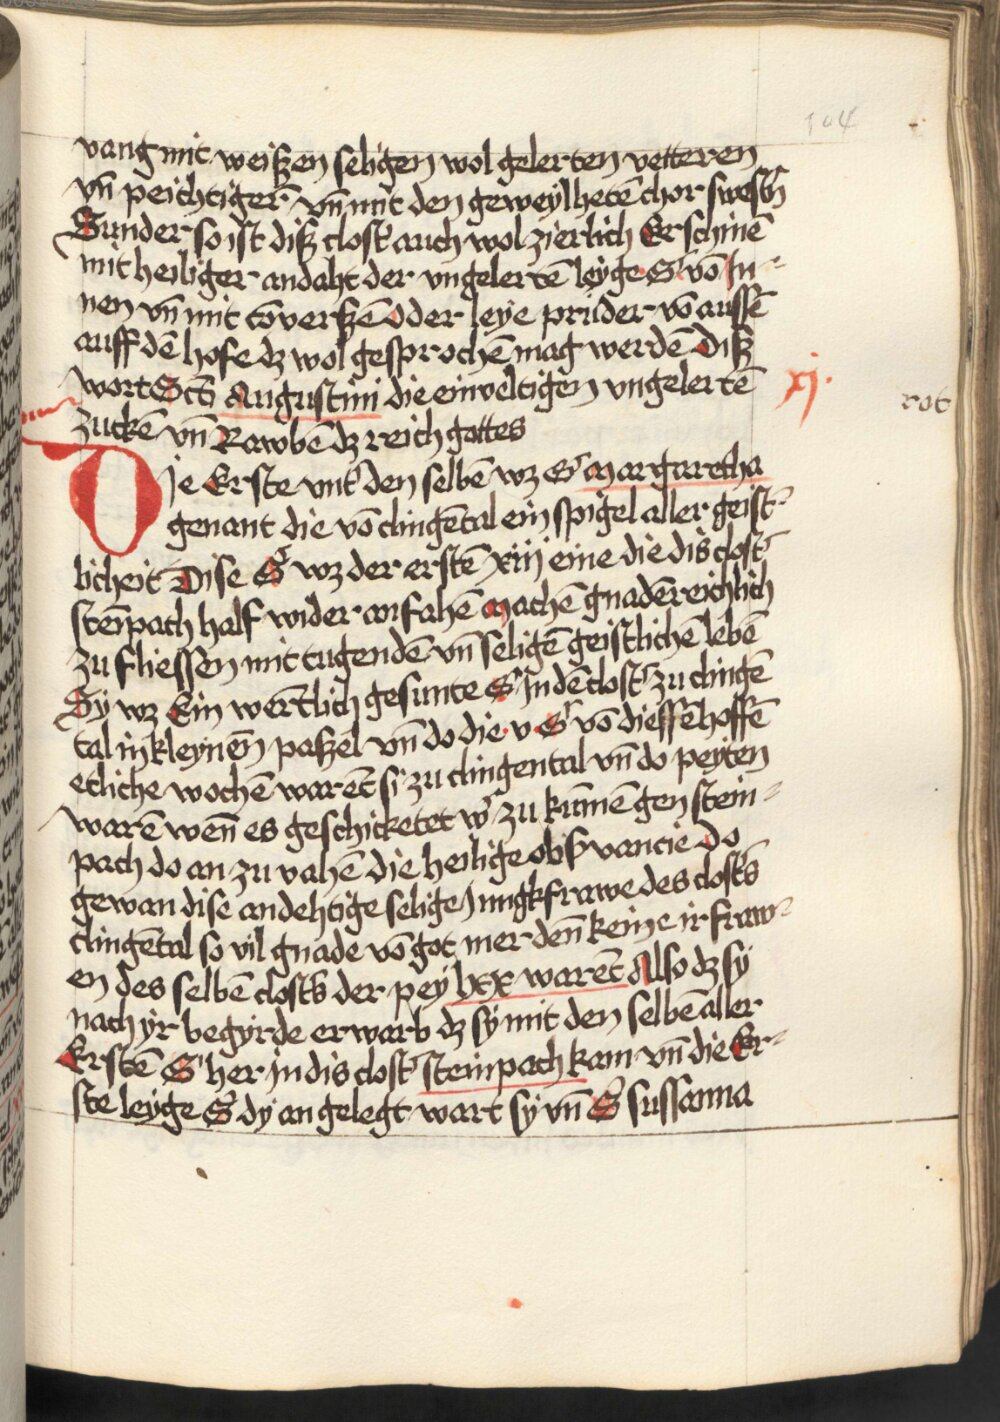 104
vang mit weißen seligen wol gelerten vetteren
vn̄ peichtiger̄ vn̄ mit den geweylhetē chor swestn̄
Sunder so ist diß clost' auch wol zierlich Erschinē
mit heiliger andaht der vngelertē leyge S' vō In⸗
nen vn̄ mit cōverßē oder leye prüder vō aussē
auff dē hofe dz wol gesprochē mag werdē Diß
wort Scti Augustini die einveltigen vngelertē
xj.
rot
zuckē vn̄ Rawbē dz reich gottes
Die Erste vnt' den selbē wz S' Margaretha
genant die vō clingētal ein spigel aller geist⸗
licheit Dise S' wz der erstē xiij eine die dis clost'
stēipach half wider anfahē Machē gnadēreichlich
zu fliessen mit tugendē vn̄ seligē geistlichē lebē
Sy wz Ein wertlich gesunte S' In dē clost' zu clingē
tal in kleynen̄ paßel vn̄ do die v S' vō diessēhoffē
etliche wochē warēt si zu clingental vn̄ do peyten
warē wen̄ es geschicketet w' zu kūmē gen stein⸗
pach do an zu vahē die heilige obs'vancie Do
gewan dise andehtige selige Jungkfrawe des closts
clingētal so vil gnade vō got mer den̄ keine ir fraw⸗
en des selbē closts der pey lxx warēt Also dz sy
nach yr begyrde erwarb dz sy mit den selbē aller
Erstē S' her In dis clost' steinpach kam vn̄ die Er⸗
ste leyge S' dy an gelegt wart sy vn̄ S' sussanna